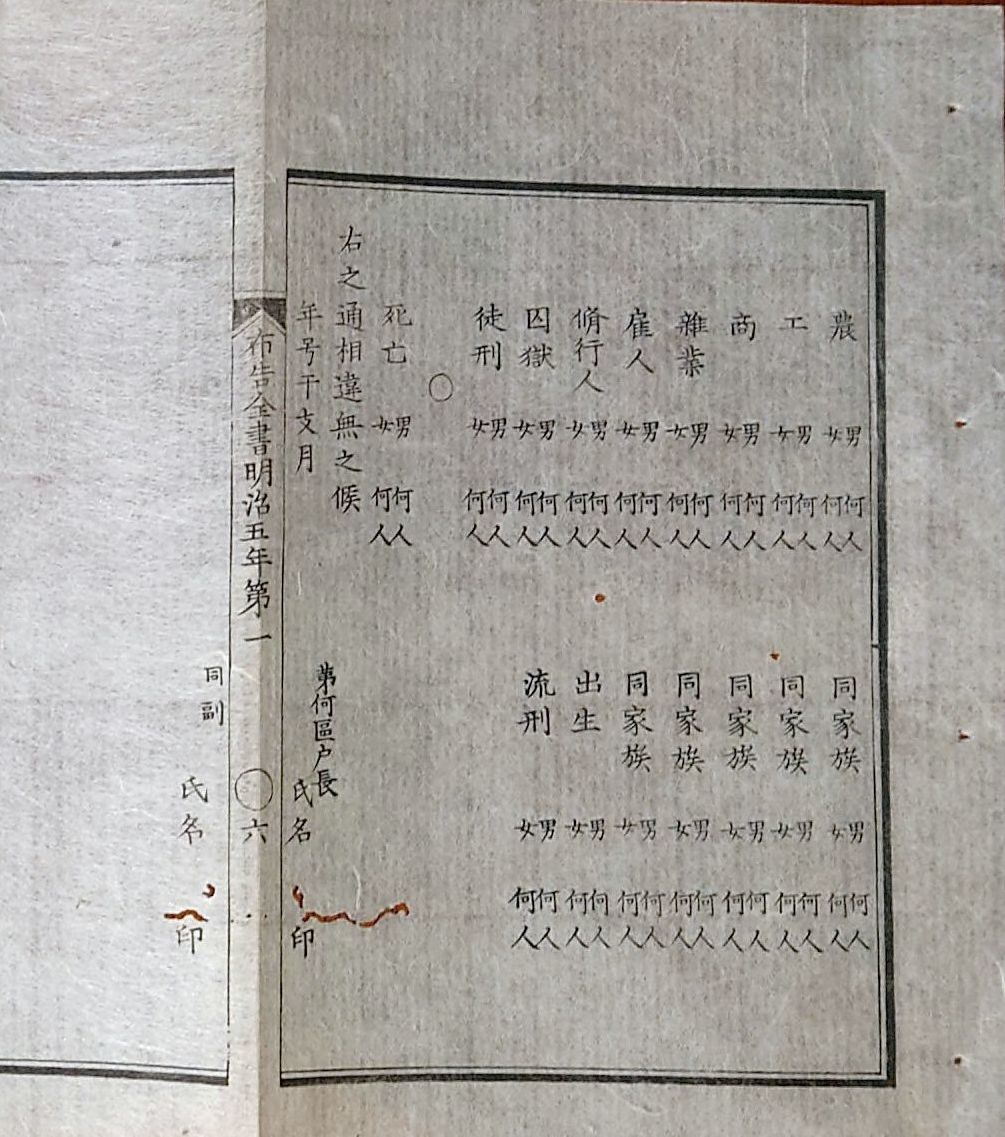 農 男何人 女何人 同家族 男何人 女何人
工 男何人 女何人 同家族 男何人 女何人
商 男何人 女何人 同家族 男何人 女何人
雜業 男何人 女何人 同家族 男何人 女何人
雇人 男何人 女何人 同家族 男何人 女何人
脩行人 男何人 女何人 出生 男何人 女何人
囚獄 男何人 女何人 流刑 男何人 女何人
徒刑 男何人 女何人
○
死亡 男何人 女何人
右之通相違無之候
年号干支月 第何區户長 氏名 印
布告全書明治五年第一 ○六
同副 氏名 印